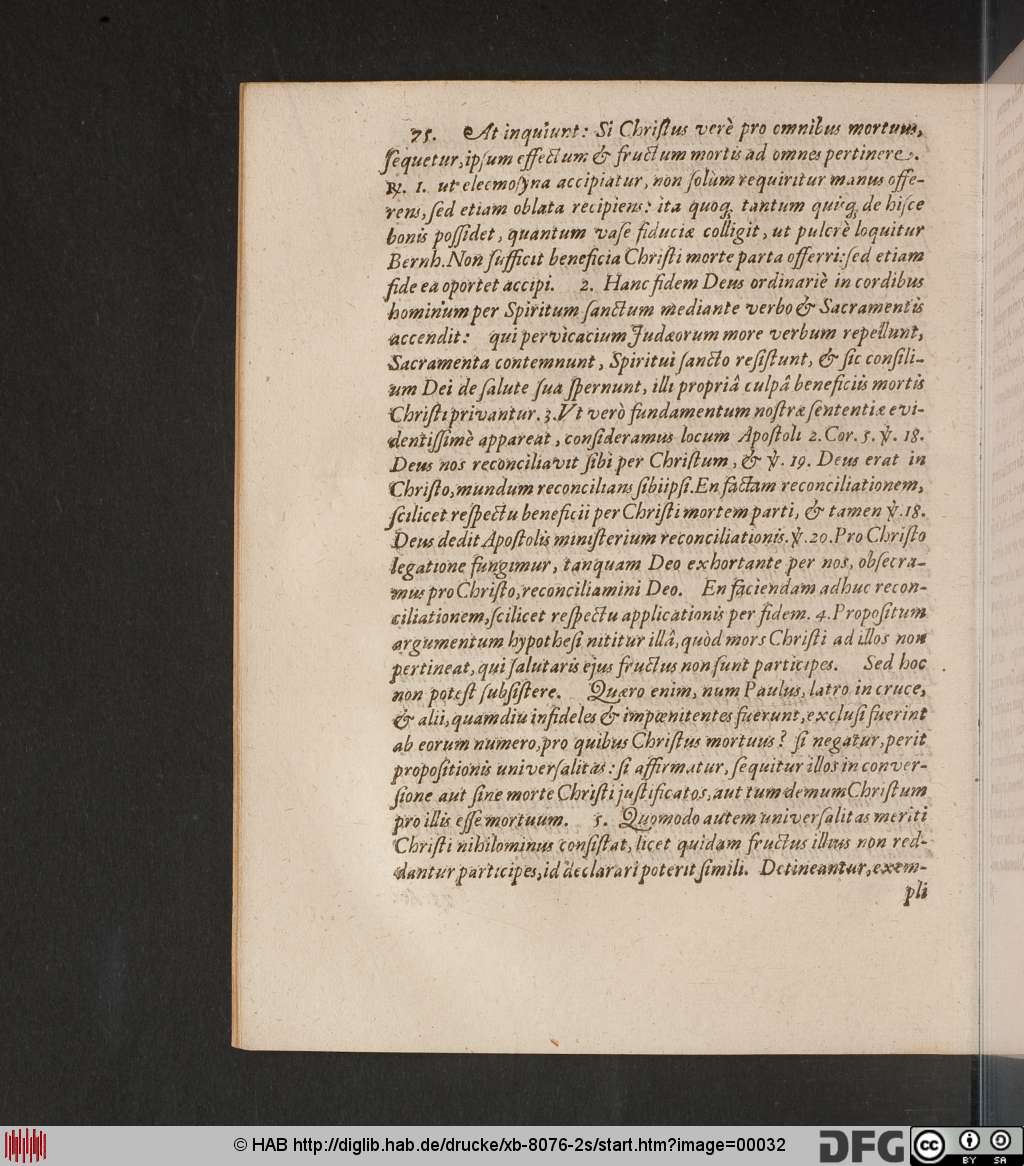 75. At inquiunt: Si Christus verè pro omnibus mortuus,
sequetur, ipsum effectum & fructum mortis ad omnes pertinere.
℞. 1. ut eleemosyna accipiatur, non solùm requiritur manus offe-
rens, sed etiam oblata recipiens: ita quoq; tantum quisq; de hisce
bonis possidet, quantum vase fiduciæ colligit, ut pulcrè loquitur
Bernh. Non sufficit beneficia Christi morte parta offerri: sed etiam
fide ea oportet accipi. 2. Hanc fidem Deus ordinariè in cordibus
hominum per Spiritum sanctum mediante verbo & Sacramentis
accendit: qui pervicacium Judæorum more verbum repellunt,
Sacramenta contemnunt, Spiritui sancto resistunt, & sic consili-
um Dei de salute sua spernunt, illi propriâ culpâ beneficiis mortis
Christi privantur. 3. Ut verò fundamentum nostræ sententiæ evi-
dentissimè appareat, consideramus locum Apostoli 2. Cor. 5. ℣. 18.
Deus nos reconciliavit sibi per Christum, & ℣. 19. Deus erat in
Christo, mundum reconcilians sibiipsi. En factam reconciliationem,
scilicet respectu beneficii per Christi mortem parti, & tamen ℣. 18.
Deus dedit Apostolis ministerium reconciliationis. ℣. 20. Pro Christo
legatione fungimur, tanquam Deo exhortante per nos, obsecra-
mus pro Christo, reconciliamini Deo. En faciendam adhuc recon-
ciliationem, scilicet respectu applicationis per fidem. 4. Propositum
argumentum hypothesi nititur illâ, quòd mors Christi ad illos non
pertineat, qui salutaris ejus fructus non sunt participes. Sed hoc
non potest subsistere. Quæro enim, num Paulus, latro in cruce,
& alii, quamdiu infideles & impœnitentes fuerunt, exclusi fuerint
ab eorum numero, pro quibus Christus mortuus? si negatur, perit
propositionis universalitas: si affirmatur, sequitur illos in conver-
sione aut sine morte Christi justificatos, aut tum demum Christum
pro illis esse mortuum. 5. Quomodo autem universalitas meriti
Christi nihilominus consistat, licet quidam fructus illius non red-
dantur participes, id declarari poterit simili. Detineantur, exem-
pli
© HAB http://diglib.hab.de/drucke/xb-8076-2s/start.htm?image=00032
DFG
cc BY SA